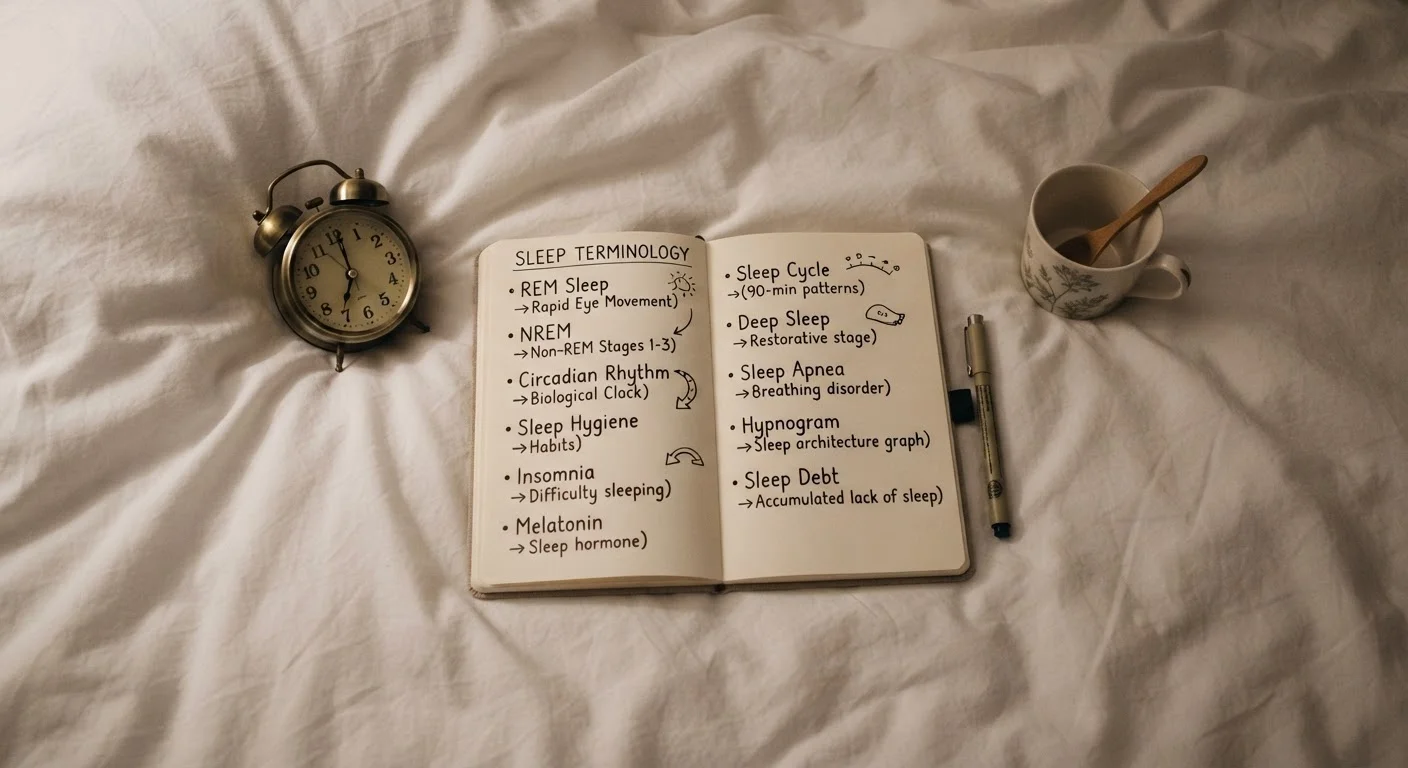 SLEEP TERMINOLOGY
• REM Sleep
→Rapid Eye Movement)
• NREM
→Non-REM Stages 1-3)
• Circadian Rhythm
→Biological Clock)
• Sleep Hygiene
→Habits)
• Insomnia
→Difficulty sleeping)
• Melatonin
→Sleep hormone)
• Sleep Cycle
→(90-min patterns)
• Deep Sleep
→Restorative stage)
• Sleep Apnea
→Breathing disorder)
• Hypnogram
→Sleep architecture graph)
• Sleep Debt
→Accumulated lack of sleep)
12
1
2
3
4
5
6
7
8
9
10
11